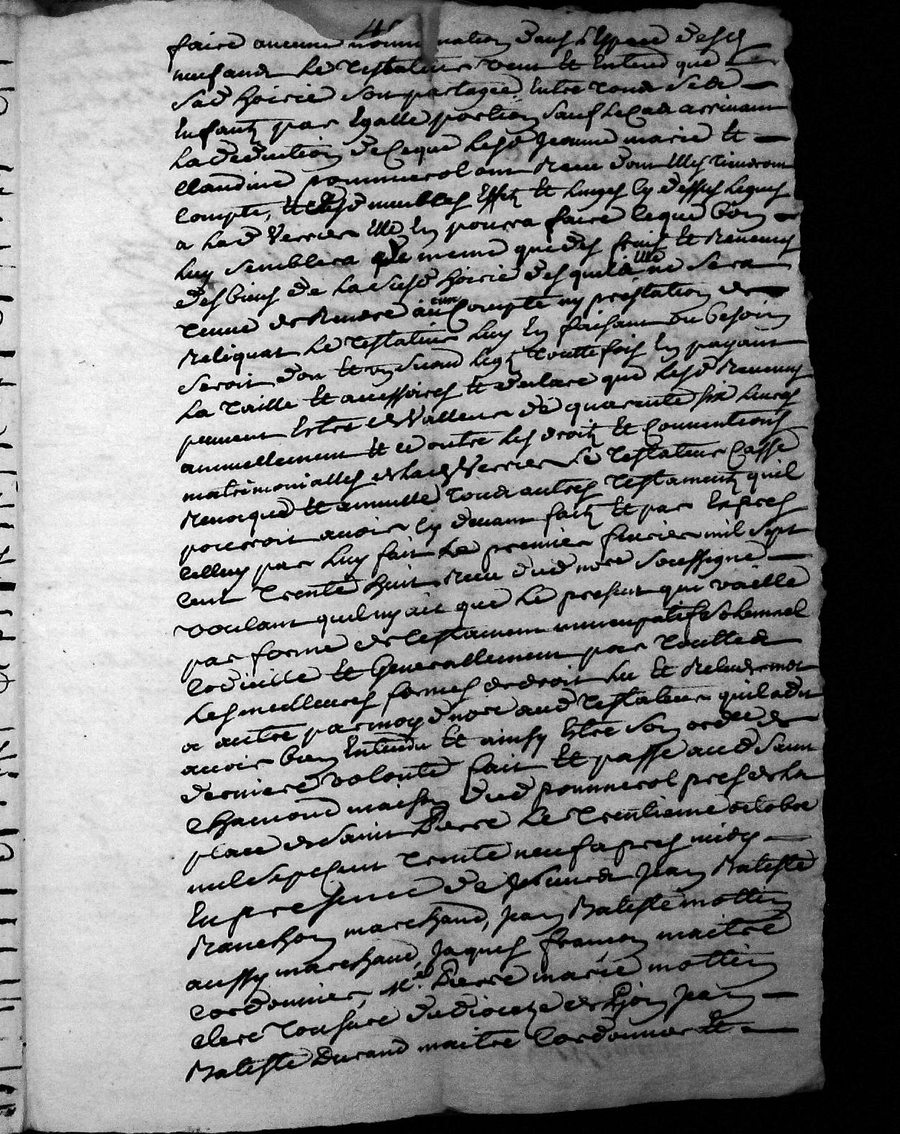 faire aucune nommination dans l'Espace desd
neuf ans Le Testateur veut Et Entend que
Sad hoirie Soit partagée Entre tous Sesd
Enfants par Egalle portion Sauf le cas arrivant
La deduction de ce que Lesd Jeanne marie Et
Claudine pommerol ont Receu dont Elles tiendront
Compte, Et Lesd meubles Effets Et Linges cy dessus Legués
a Lad Verrier Elle En pourra faire ce que bon
Luy semblera de meme que des fruits Et Revenus
des biens de La Susd hoirie desquels Elle ne Sera
tenue de Rendre aucun Compte ny prestation de
Reliquat Le Testateur Luy En faisant ou besoin
Seroit don Et Legs Touttefois En payant
La Taille Et accessoires Et declare que Lesd Revenus
peuvent Estre de Valleur de quarante six Livres
annuellement Et ce outre Les droits Et Conventions
matrimonialles de Lad Verrier Le Testateur Casse
Revoque Et annulle tous autres Testaments qu'il
pourroit avoir cy devant faits Et par Exprés
Celluy par Luy fait Le premier fevrier mil Sept
Cent Trente huit Receu dud nore Soussigné
voulant quil ny ait que Le present qui vaille
par forme de Testament nuncupatif
Codicille Et Generallement par Toutte
Les meilleures formes de droit Lu Et Relu de mot
a autre par moyd nore aud Testateur quil a dit
avoir bien Entendu Et ainsy Estre Son ordre de
derniere volonté fait Et passé aud Saint
Chamond maison dud pommerol pres de La
place de Saint Pierre Le Trentieme octobre
mil Sept Cent trente neuf apres midy
En presence de Jean Batiste
Ranchon marchand, Jean Batiste mottin
aussy marchand, Jaques francon maitre
Cordonnier, Me Pierre marie mottin
Clerc Tonsuré du dioceze de Lyon Jean
Batiste Durand maitre Cordonnier Et